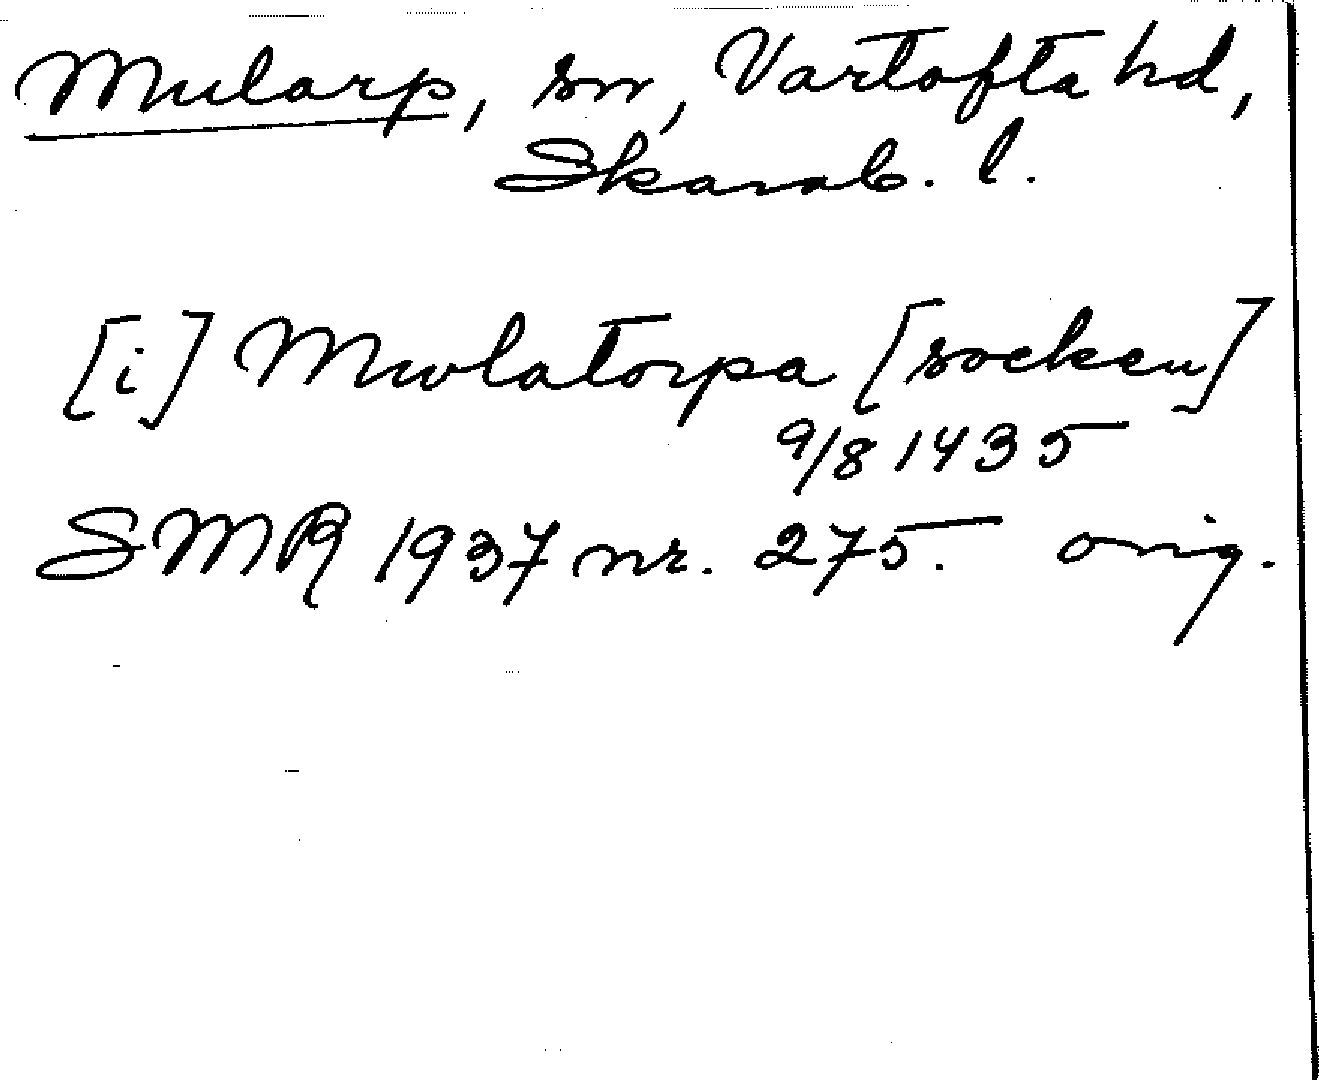 Mularp, sn, Vartofta hd,
Skarab. l.
[i] Mwlatorpa [socken]
9/8 1435
SMR 1937 nr. 275. orig.